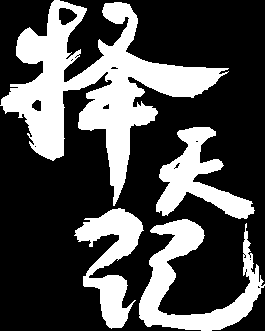 择天记